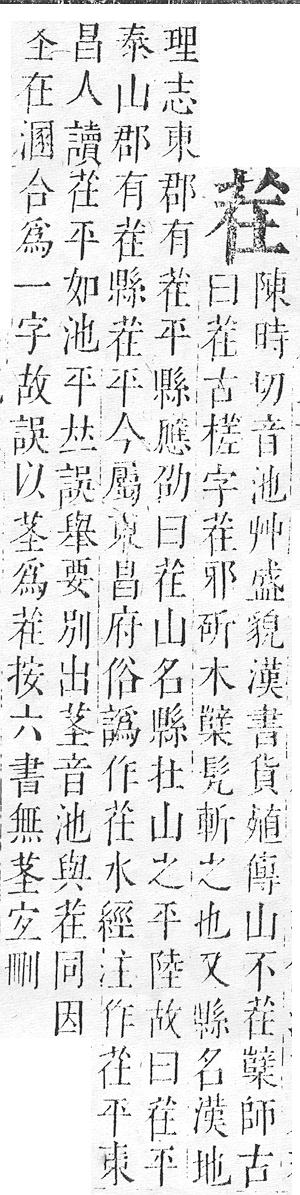 茬
陳時切音池艸盛貌漢書貨殖傳山不茬蘖師古
曰茬古槎字茬邪斫木蘖髡斬之也又縣名漢地
理志東郡有茬平縣應劭曰茬山名縣在山之平陸故曰茬平
泰山郡有茬縣茬平今屬東昌府俗譌作茬水經注作茬平東
昌人讀茬平如池平𠀤誤舉要別出荃音池與茬同因
仝在溷合爲一字故誤以荃爲茬按六書無荃宐刪